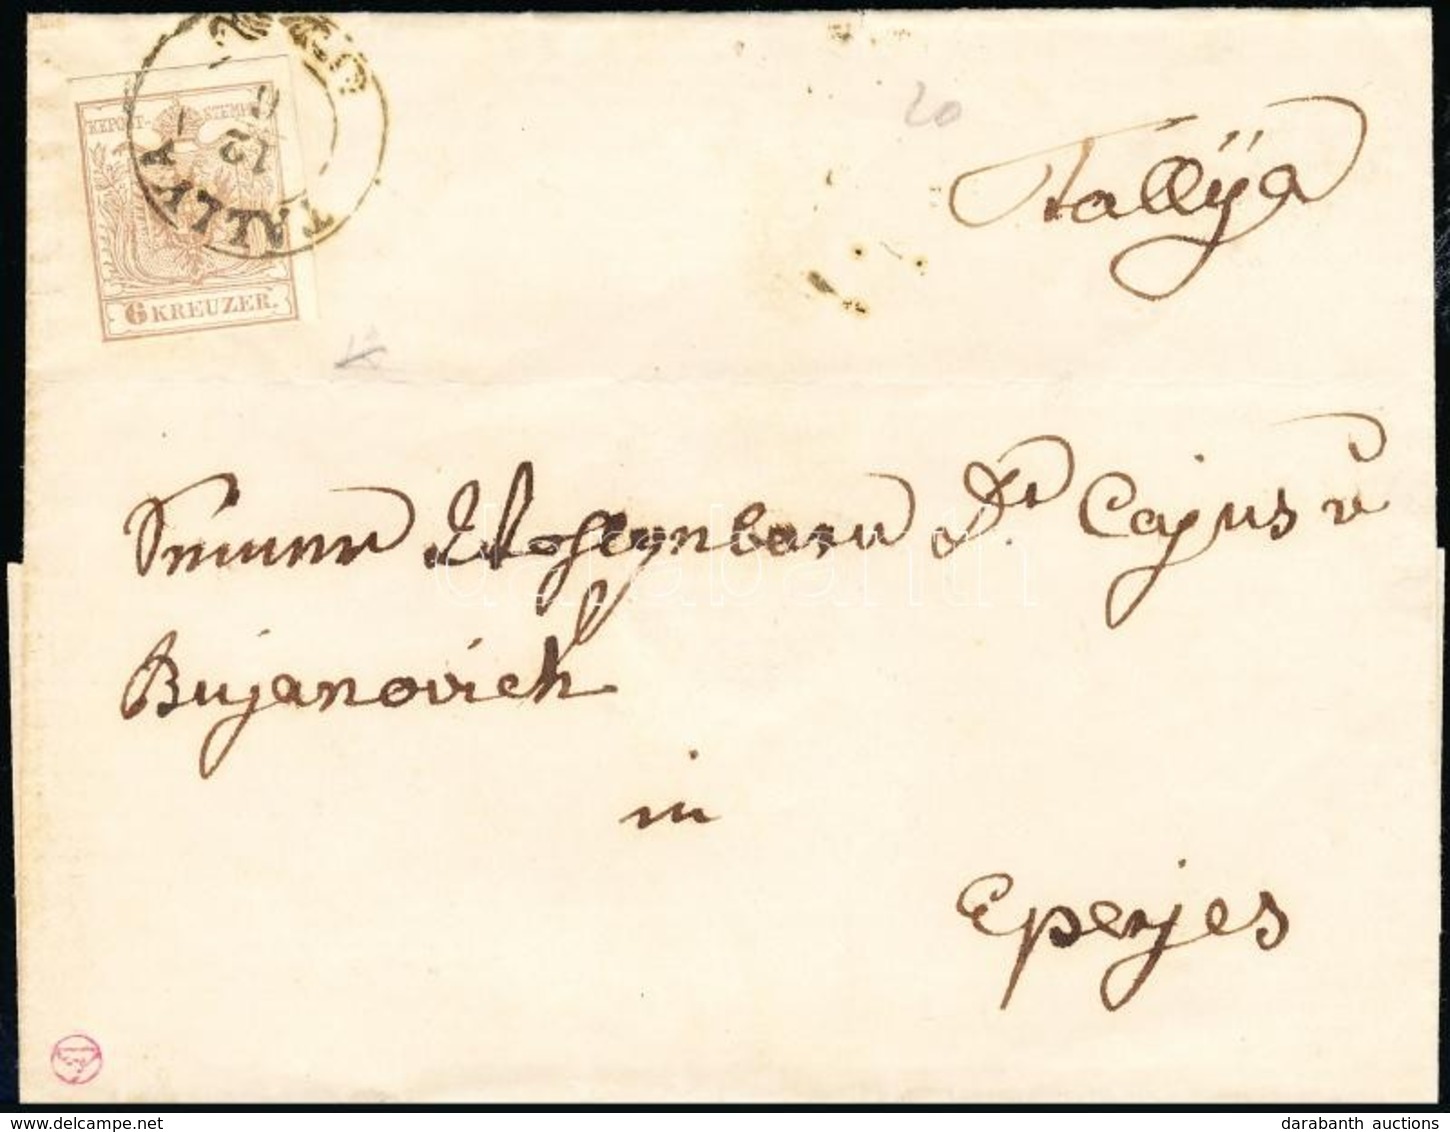 20
Tallÿa
KKPOST-STEMPEL
TALLYA
12
6
6 KREUZER.
Dr Cajus v
Bujanovich
in
Eperjes
darabanth
darabanth auctions
www.delcampe.net